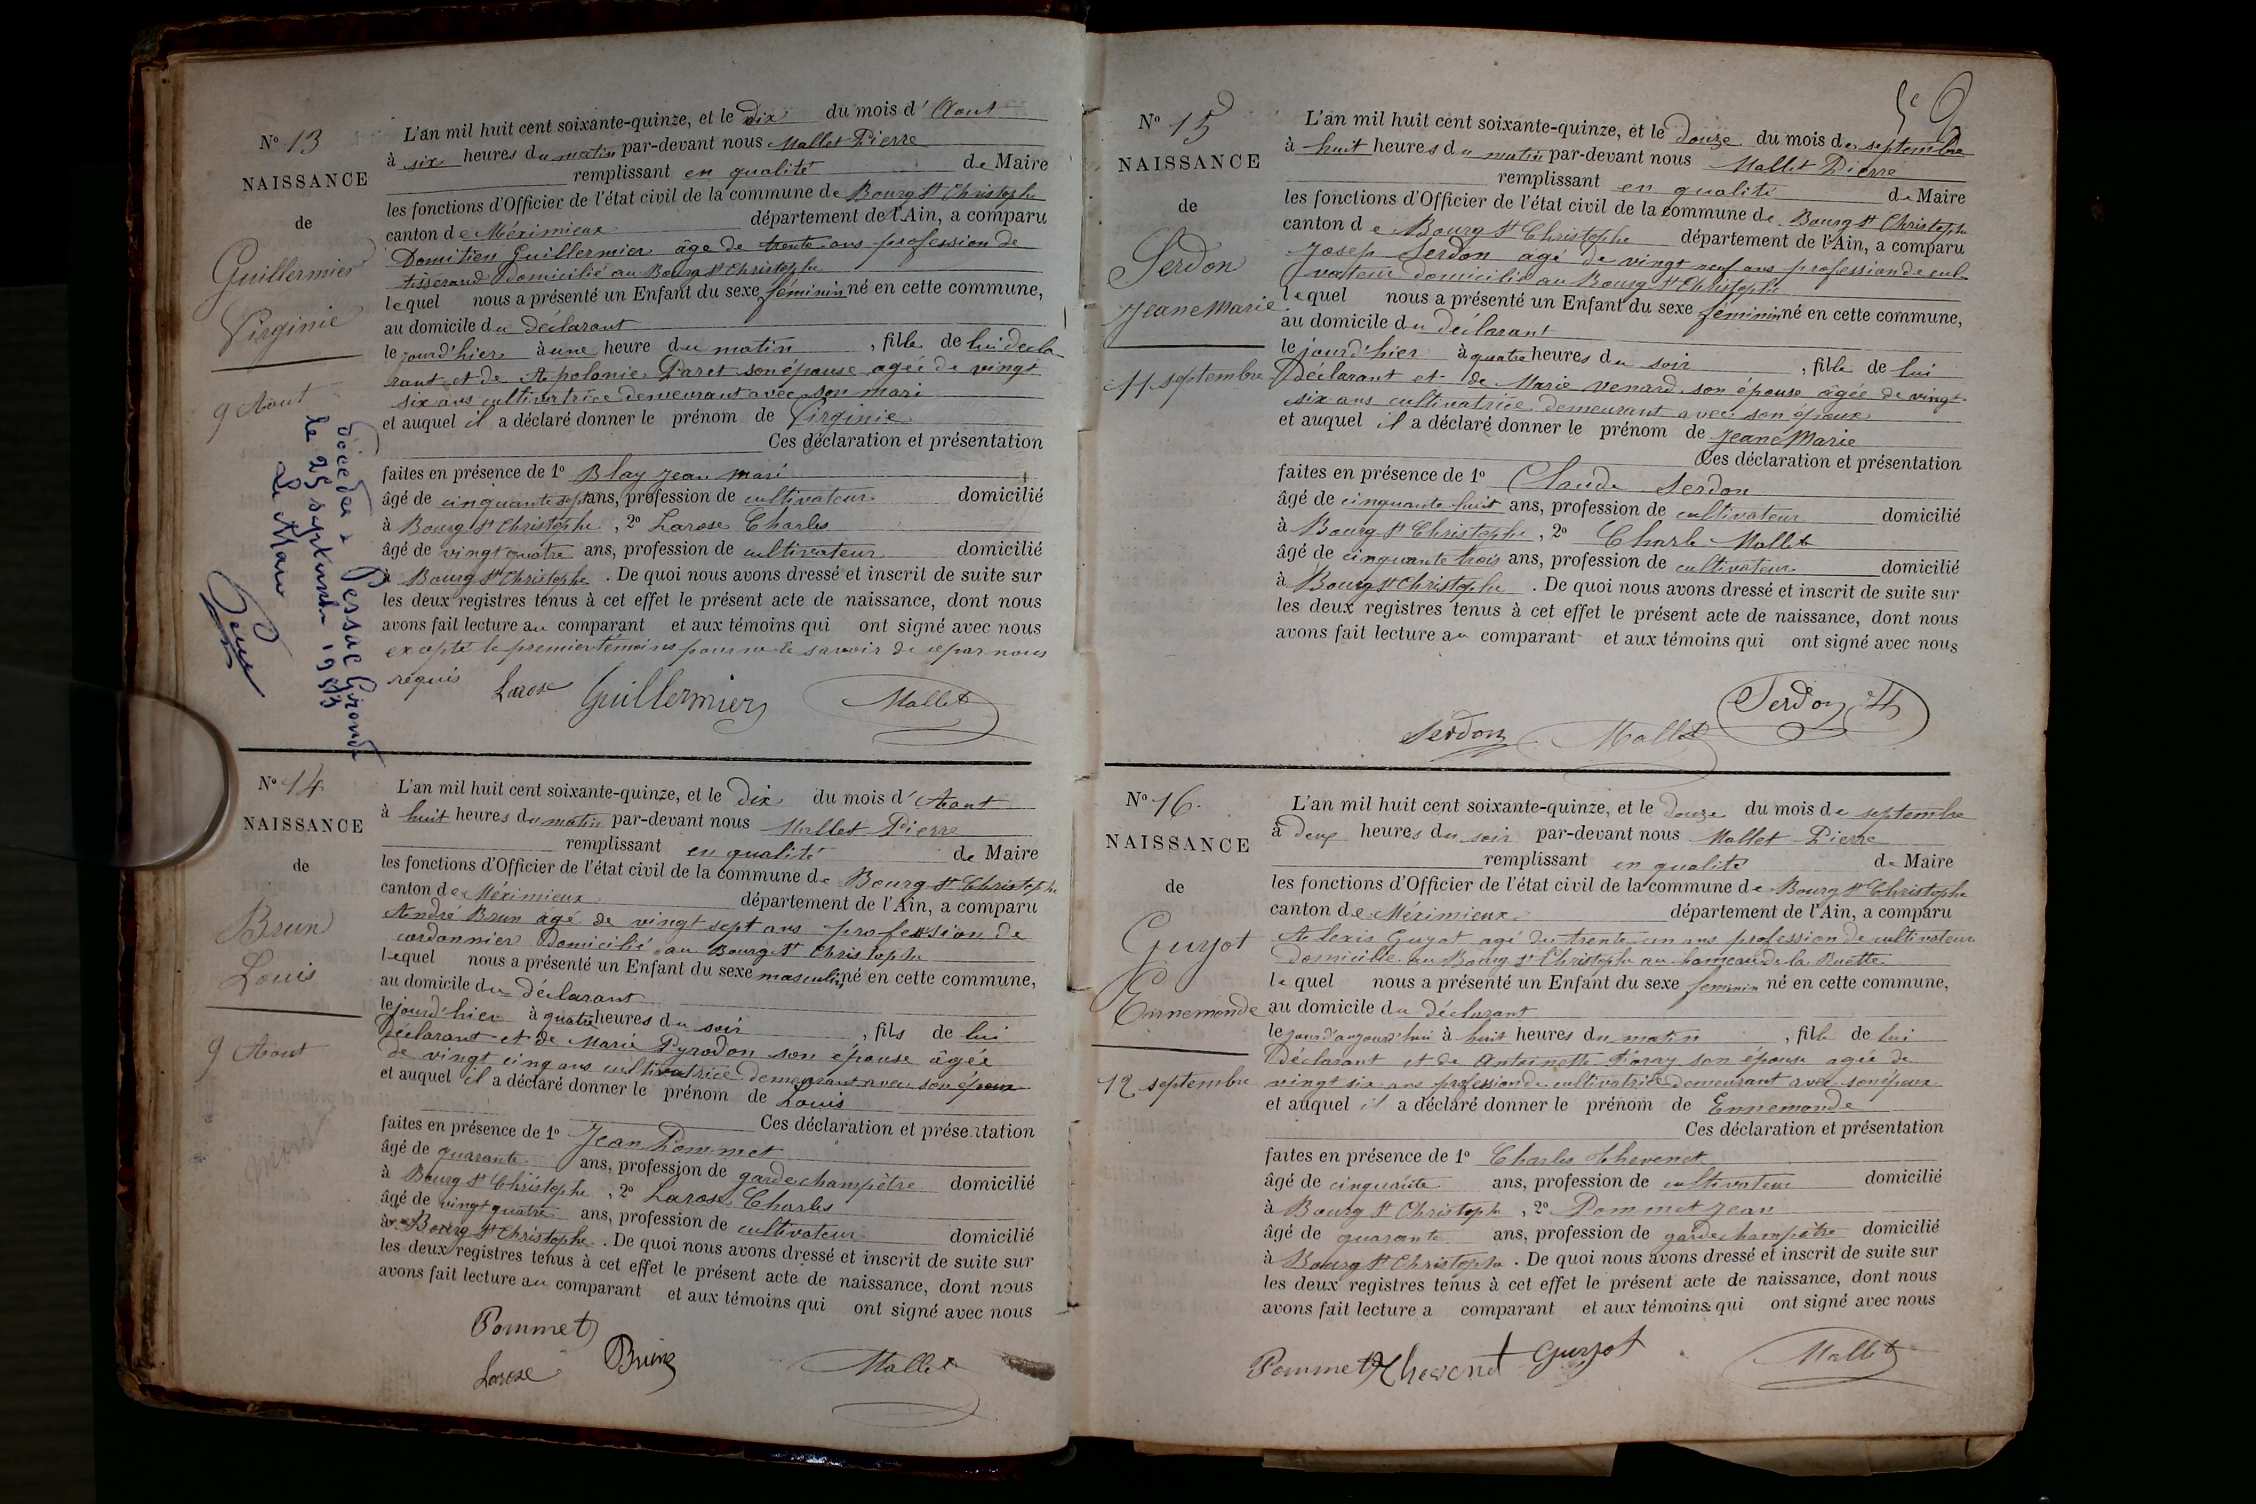 N° 13
NAISSANCE
de
Guillermier
Virginie
9 Aout
décédée à Pessac Gironde
le 25 septembre 1953
Le Maire
L'an mil huit cent soixante-quinze, et le dix du mois d'Aout
à six heures du matin par-devant nous Mallet Pierre
remplissant en qualité de Maire
les fonctions d'Officier de l'état civil de la commune de Bourg St Christophe
canton de Méximieux département de l'Ain, a comparu
Domitien Guillermier âge de trente ans profession de
tisserand Domicilié au Bourg St Christophe
lequel nous a présenté un Enfant du sexe féminin né en cette commune,
au domicile du déclarant
le jourd'hier à une heure du matin , fille de lui decla
rant et de Apolonie Paret son épouse agée de vingt
six ans cultivatrice demeurant avec son mari
et auquel il a déclaré donner le prénom de Virginie
Ces déclaration et présentation
faites en présence de 1° Blay Jean mari
âgé de cinquante sept ans, profession de cultivateur domicilié
à Bourg St Christophe, 2° Larose Charles
âgé de vingt quatre ans, profession de cultivateur domicilié
à Bourg St Christophe. De quoi nous avons dressé et inscrit de suite sur
les deux registres tenus à cet effet le présent acte de naissance, dont nous
avons fait lecture au comparant et aux témoins qui ont signé avec nous
excepté le premier témoins pour ne le savoir de ce par nous
réquis
Larose Guillermier Mallet
N° 14
NAISSANCE
de
Brun
Louis
9 Aout
L'an mil huit cent soixante-quinze, et le Dix du mois d'Aout
à huit heures du matin par-devant nous Mallet Pierre
remplissant en qualité de Maire
les fonctions d'Officier de l'état civil de la commune de Bourg St Christophe
canton de Méximieux département de l'Ain, a comparu
André Brun âgé de vingt sept ans profession de
cordonnier Domicilié au Bourg St Christophe
lequel nous a présenté un Enfant du sexe masculin né en cette commune,
au domicile du déclarant
le jourd'hier à quatre heures du soir , fils de lui
Déclarant et de Marie Pyrodon son épouse âgée
de vingt cinq ans cultivatrice demeurant avec son époux
et auquel il a déclaré donner le prénom de Louis
Ces déclaration et présentation
faites en présence de 1° Jean Pommet
âgé de quarante ans, profession de garde champêtre domicilié
à Bourg St Christophe, 2° Larose Charles
âgé de vingt quatre ans, profession de cultivateur domicilié
à Bourg St Christophe. De quoi nous avons dressé et inscrit de suite sur
les deux registres tenus à cet effet le présent acte de naissance, dont nous
avons fait lecture au comparant et aux témoins qui ont signé avec nous
Pommet
Larose Brun Mallet
N° 15
NAISSANCE
de
Serdon
Jeane Marie
11 septembre
L'an mil huit cent soixante-quinze, et le douze du mois de septembre
à huit heures du matin par-devant nous Mallet Pierre
remplissant en qualité de Maire
les fonctions d'Officier de l'état civil de la commune de Bourg St Christophe
canton de Bourg St Christophe département de l'Ain, a comparu
Josep Serdon agé de vingt neuf ans profession de cul
vateur domicilié au Bourg St Christophe
lequel nous a présenté un Enfant du sexe féminin né en cette commune,
au domicile du déclarant
le jourd'hier à quatre heures du soir , fille de lui
Déclarant et de Marie Venard son épouse âgée de vingt
six ans cultivatrice demeurant avec son époux
et auquel il a déclaré donner le prénom de Jeane Marie
Ces déclaration et présentation
faites en présence de 1° Claude Serdon
âgé de cinquante huit ans, profession de cultivateur domicilié
à Bourg St Christophe, 2° Charle Mallet
âgé de cinquante trois ans, profession de cultivateur domicilié
à Bourg St Christophe. De quoi nous avons dressé et inscrit de suite sur
les deux registres tenus à cet effet le présent acte de naissance, dont nous
avons fait lecture au comparant et aux témoins qui ont signé avec nous
Serdon
Serdon Mallet
N° 16
NAISSANCE
de
Guyot
Ennemonde
12 septembre
L'an mil huit cent soixante-quinze, et le douze du mois de septembre
à deux heures du soir par-devant nous Mallet Pierre
remplissant en qualité de Maire
les fonctions d'Officier de l'état civil de la commune de Bourg St Christophe
canton de Méximieux département de l'Ain, a comparu
Alexis Guyot agé de trente un ans profession de cultivateur
Domicilié au Bourg St Christophe au hameau de la Ruette
lequel nous a présenté un Enfant du sexe feminin né en cette commune,
au domicile du déclarant
le jourd'aujourd'hui à huit heures du matin , fille de lui
Déclarant et de Antoinette son épouse agée de
vingt six ans profession de cultivatrice demeurant avec son époux
et auquel il a déclaré donner le prénom de Ennemonde
Ces déclaration et présentation
faites en présence de 1° Charles Thevenet
âgé de cinquante ans, profession de cultivateur domicilié
à Bourg St Christophe, 2° Pommet Jean
âgé de quarante ans, profession de garde champêtre domicilié
à Bourg St Christophe. De quoi nous avons dressé et inscrit de suite sur
les deux registres tenus à cet effet le présent acte de naissance, dont nous
avons fait lecture a comparant et aux témoins qui ont signé avec nous
Pommet Thevenet Guyot Mallet